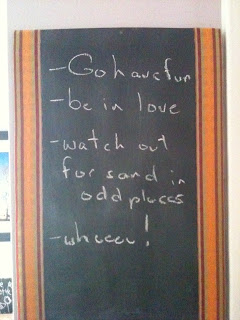 - Go have fun
- be in love
- watch out
for sand in
odd places
- wheeee!